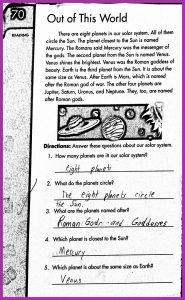 70
READING
Out of This World
There are eight planets in our solar system. All of them
circle the Sun. The planet closest to the Sun is named
Mercury. The Romans said Mercury was the messenger of
the gods. The second planet from the Sun is named Venus.
Venus shines the brightest. Venus was the Roman goddess of
beauty. Earth is the third planet from the Sun. It is about the
same size as Venus. After Earth is Mars, which is named
after the Roman god of war. The other four planets are
Jupiter, Saturn, Uranus, and Neptune. They, too, are named
after Roman gods.
Directions: Answer these questions about our solar system.
1. How many planets are in our solar system?
Eight planets
2. What do the planets circle?
The eight planets circle
the Sun.
3. What are the planets named after?
Roman Gods and Goddesses
4. Which planet is closest to the Sun?
Mercury
5. Which planet is about the same size as Earth?
Venus